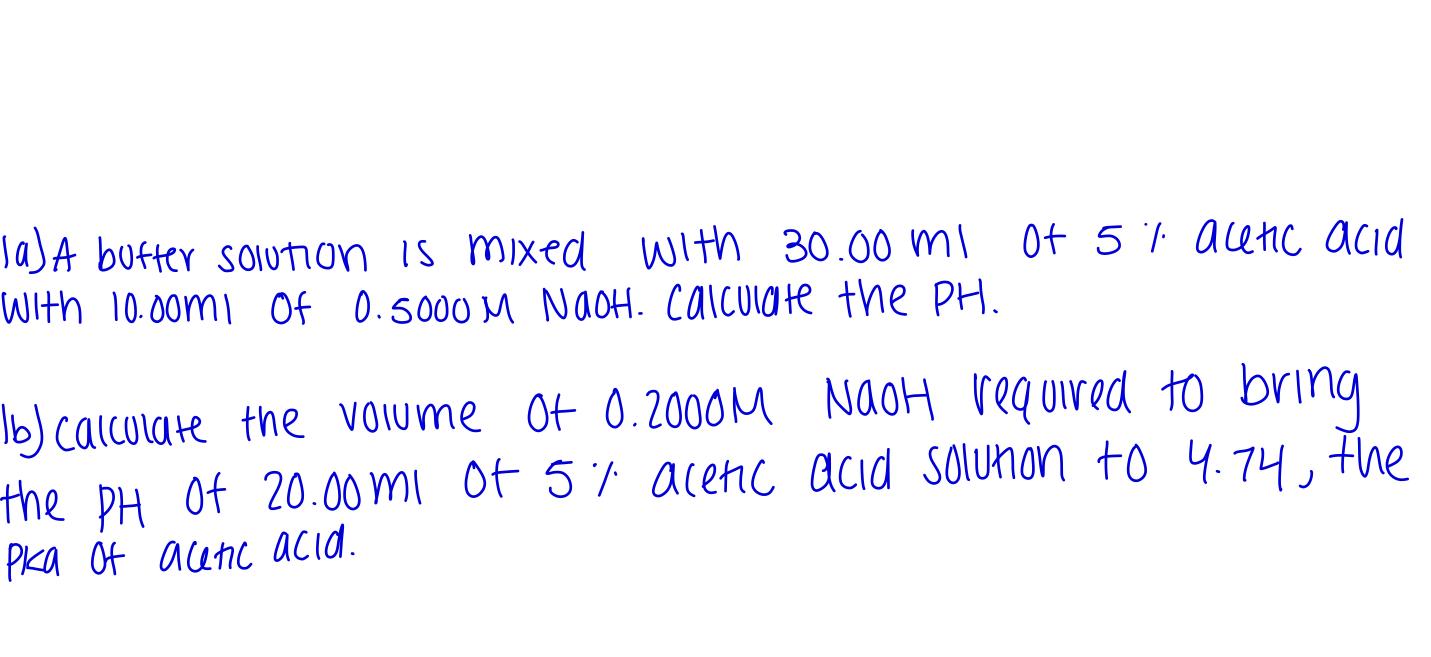 1a) A buffer solution is mixed with 30.00 ml of 5 % acetic acid
with 10.00ml of 0.5000M NaOH. Calculate the PH.
1b) calculate the volume of 0.2000M NaOH required to bring
the PH of 20.00ml of 5 % acetic acid solution to 4.74, the
Pka of acetic acid.